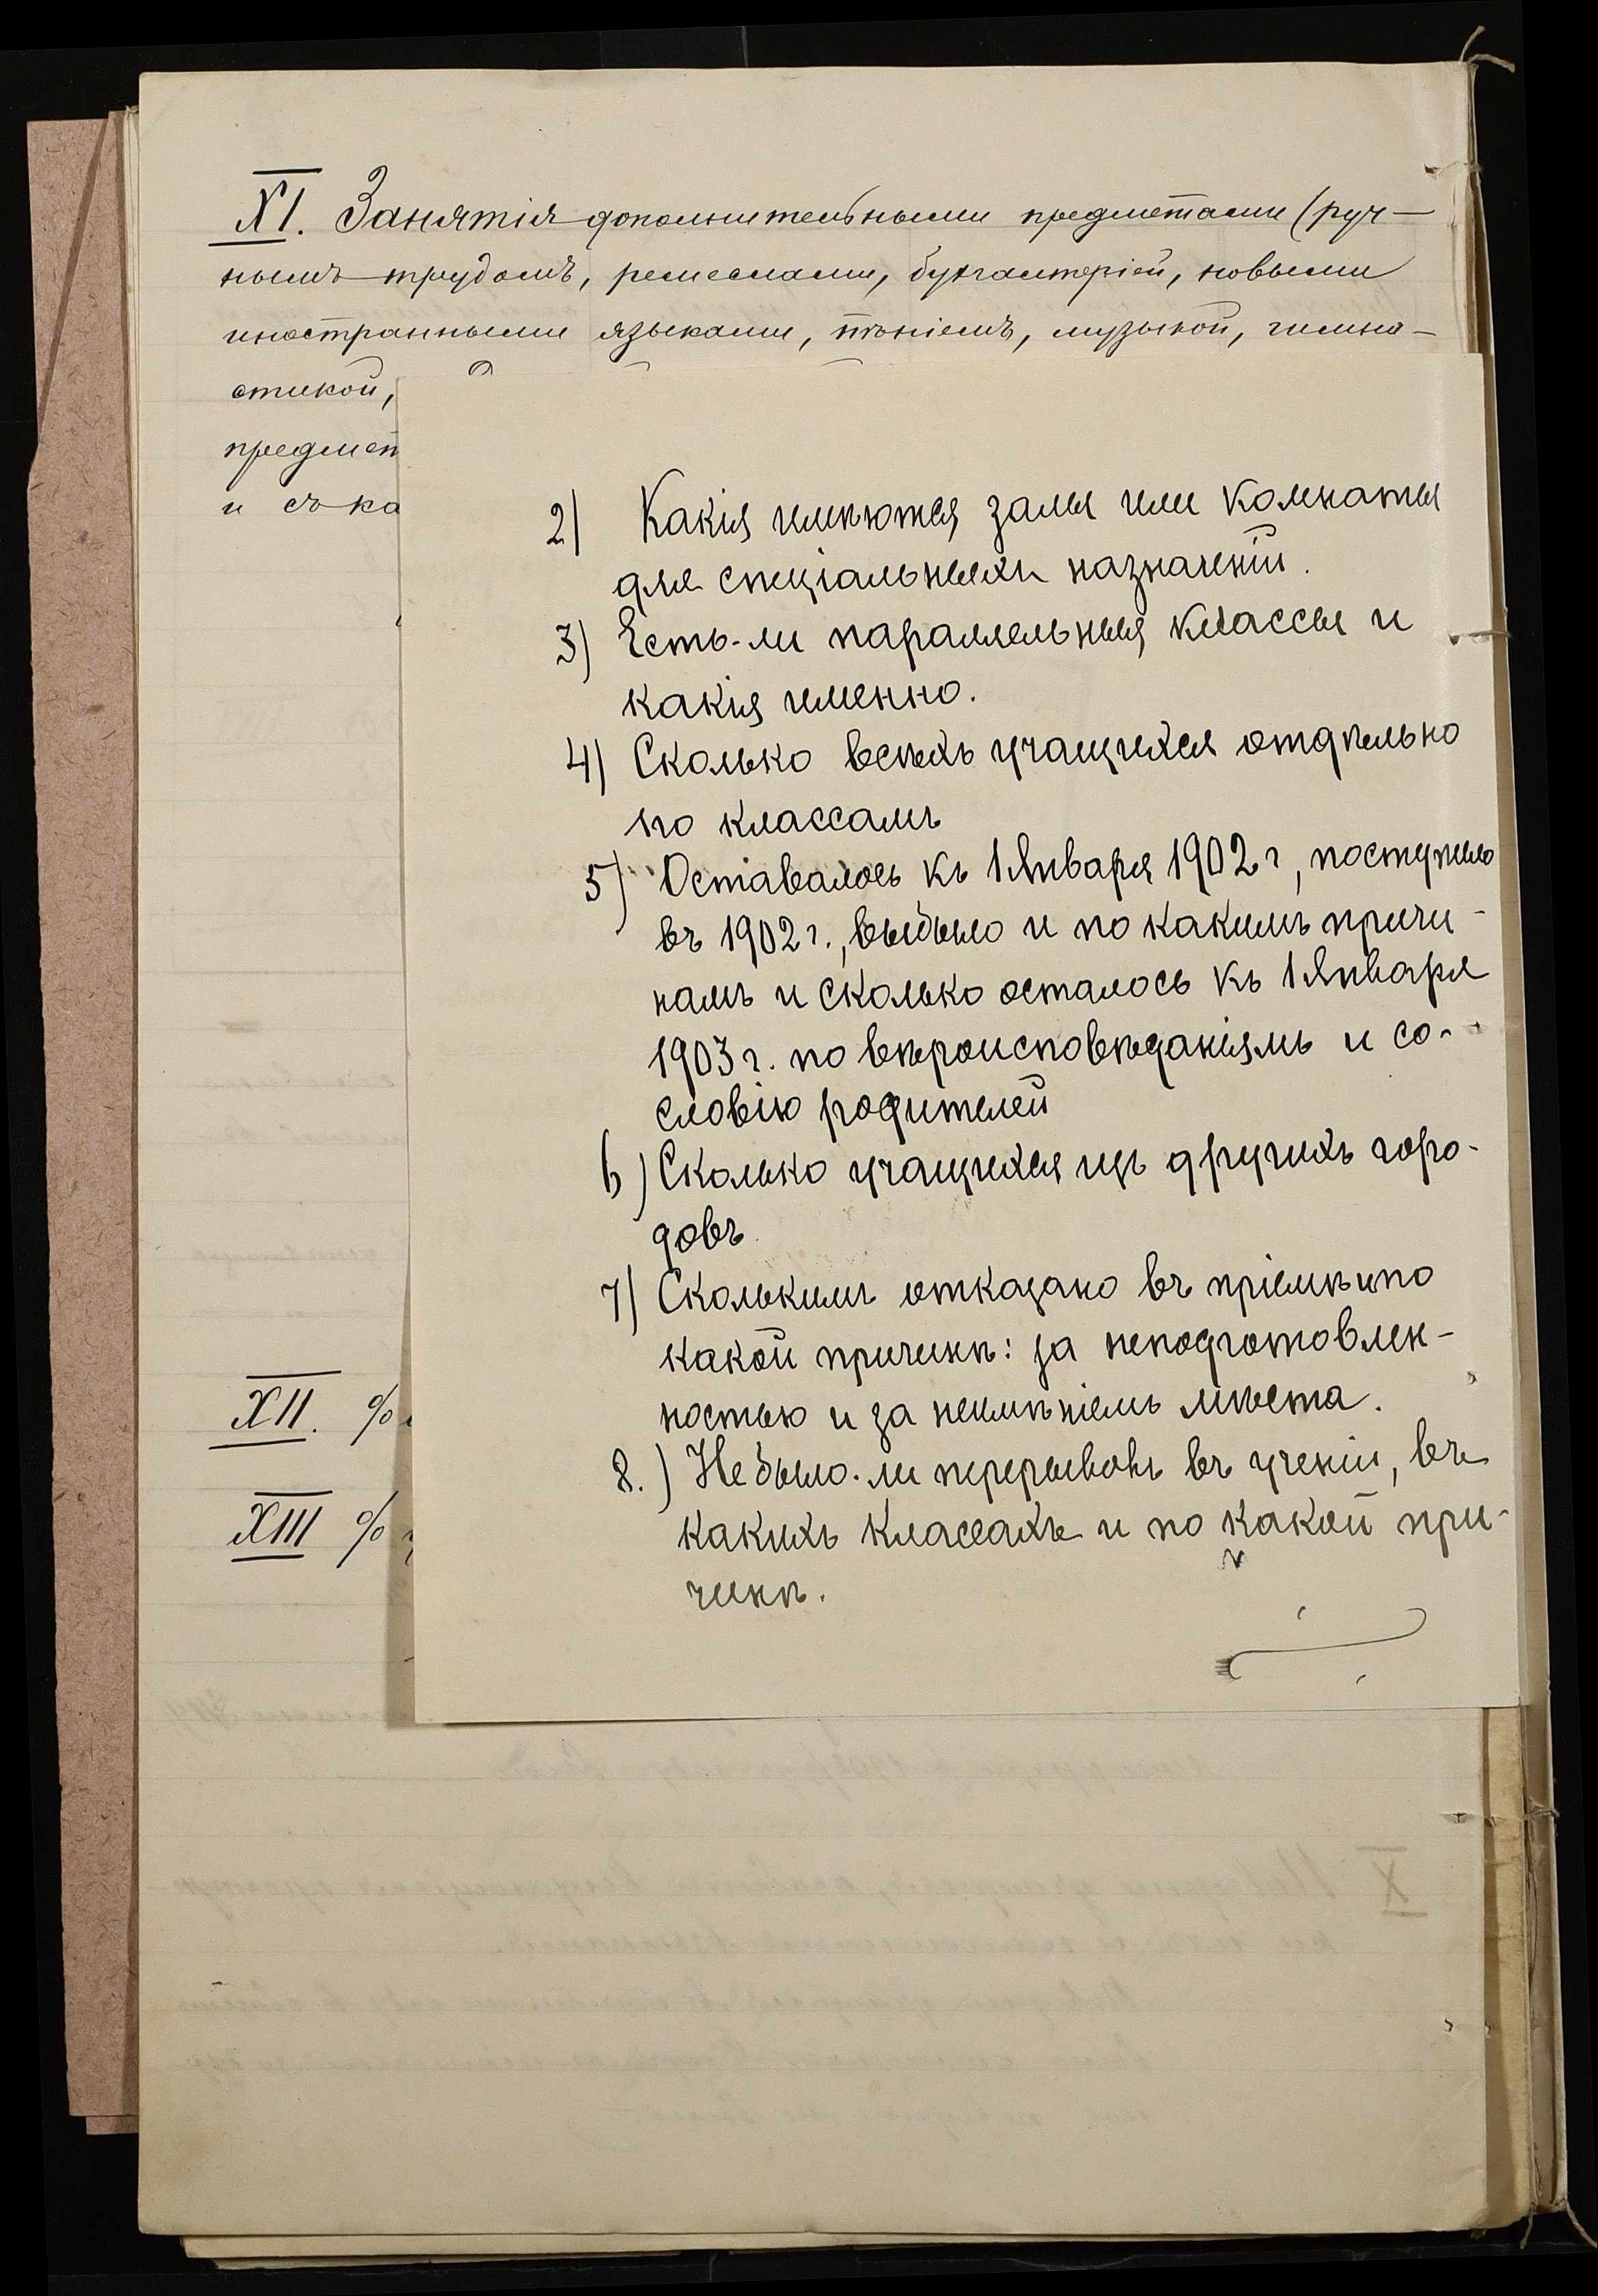 XI. Занятія дополнительными предметами (руч-
нымъ трудомъ, ремеслами, бухгалтеріей, новыми
иностранными языками, пѣніемъ, музыкой, гимна-
стикой,
предмет
и съ ка
2) Какія имѣются залы или комнаты
для спеціальныхъ назначеній.
3) Есть-ли параллельныя классы и
какія именно.
4) Сколько всѣхъ учащихся отдѣльно
по классамъ
5) Оставалось къ 1 Января 1902 г, поступило
въ 1902 г., выбыло и по какимъ причи-
намъ и сколько осталось къ 1 Января
1903 г. по вѣроисповѣданіямъ и со-
словію родителей
6) Сколько учащихся изъ другихъ горо-
довъ
7) Сколькимъ отказано въ пріемѣ и по
какой причинѣ: за неподготовлен-
ностью и за неимѣніемъ мѣста.
8.) Не было-ли перерывовъ въ ученіи, въ
какихъ классахъ и по какой при-
чинѣ.
XII. %
XIII %